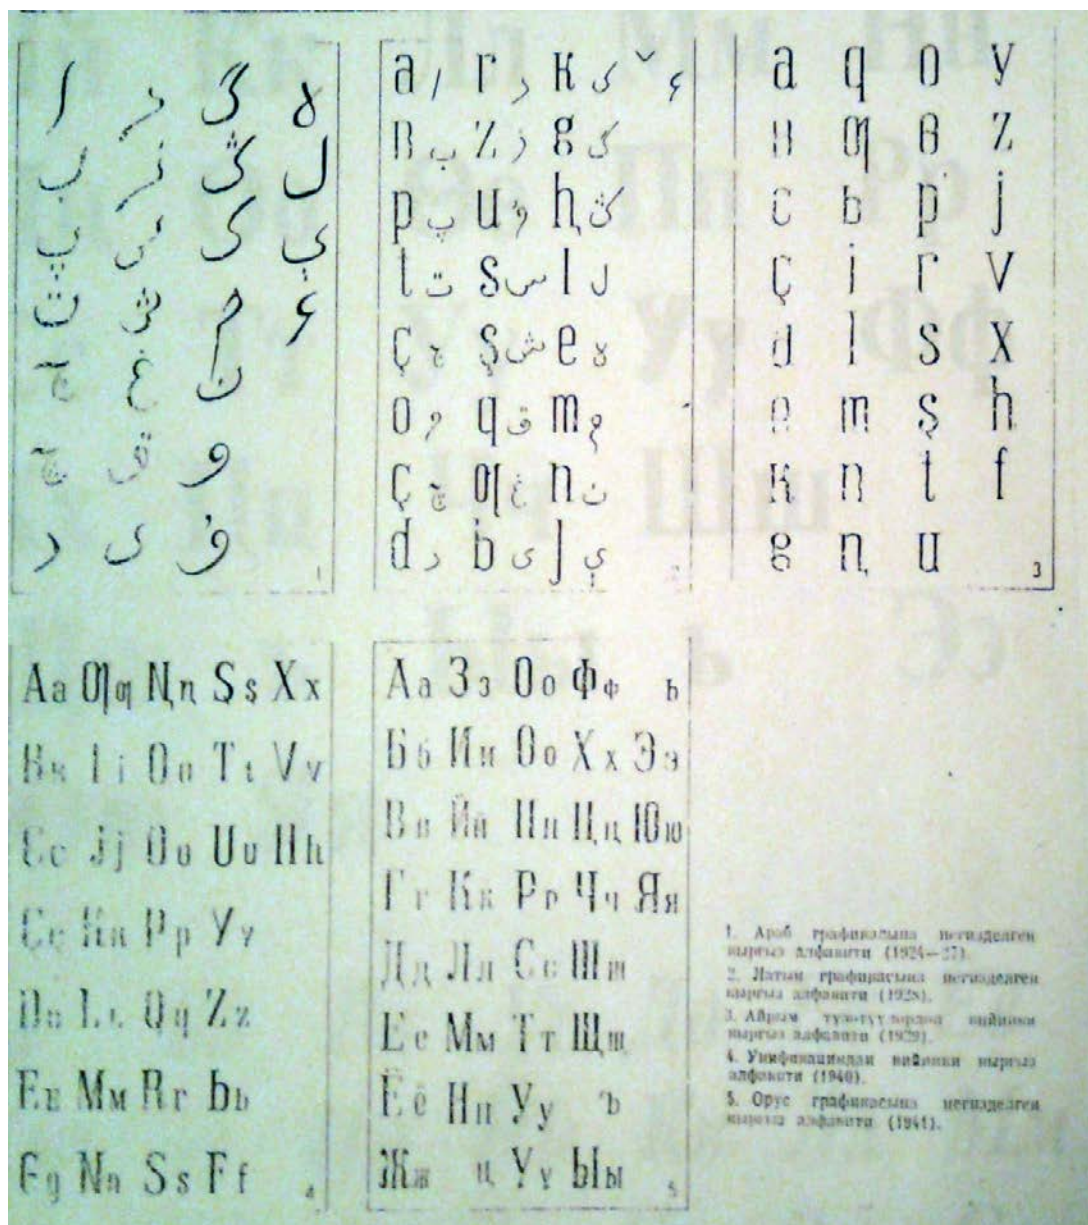 ا ر گ ە
ب ز ڭ ل
پ س ك ي
ت ش م ء
ج غ ن
چ ق و
د ى ۋ
1
a ا r ر к ك ˇ ء
ʙ ب z ز g گ
p پ u ۋ ꞑ ڭ
t ت s س l ل
ç ج ş ش e ە
o و q ق m م
ç چ ƣ غ n ن
d د ь ى j ي
2
a q o y
ʙ ƣ ө z
c ь p j
ç i r v
d l s x
e m ş h
к n t f
g ꞑ u
3
Aa Ƣƣ Ꞑꞑ Şş Xx
Bʙ Ii Oo Tt Vv
Cc Jj Өө Uu Hh
Çç Kк Pp Yy
Dd Ll Qq Zz
Ee Mм Rr Ьь
Gg Nn Ss Ff
4
Аа Зз Оо Фф ь
Бб Ии Өө Хх Ээ
Вв Йй Пп Цц Юю
Гг Кк Рр Чч Яя
Дд Лл Сс Шш
Ее Мм Тт Щщ
Ёё Нн Уу ъ
Жж ң Үү Ыы
5
1. Араб графикасына негизделген
кыргыз алфавити (1924—27).
2. Латын графикасына негизделген
кыргыз алфавити (1928).
3. Айрым түзөтүүлөрдөн кийинки
кыргыз алфавити (1929).
4. Унификациядан кийинки кыргыз
алфавити (1940).
5. Орус графикасына негизделген
кыргыз алфавити (1941).